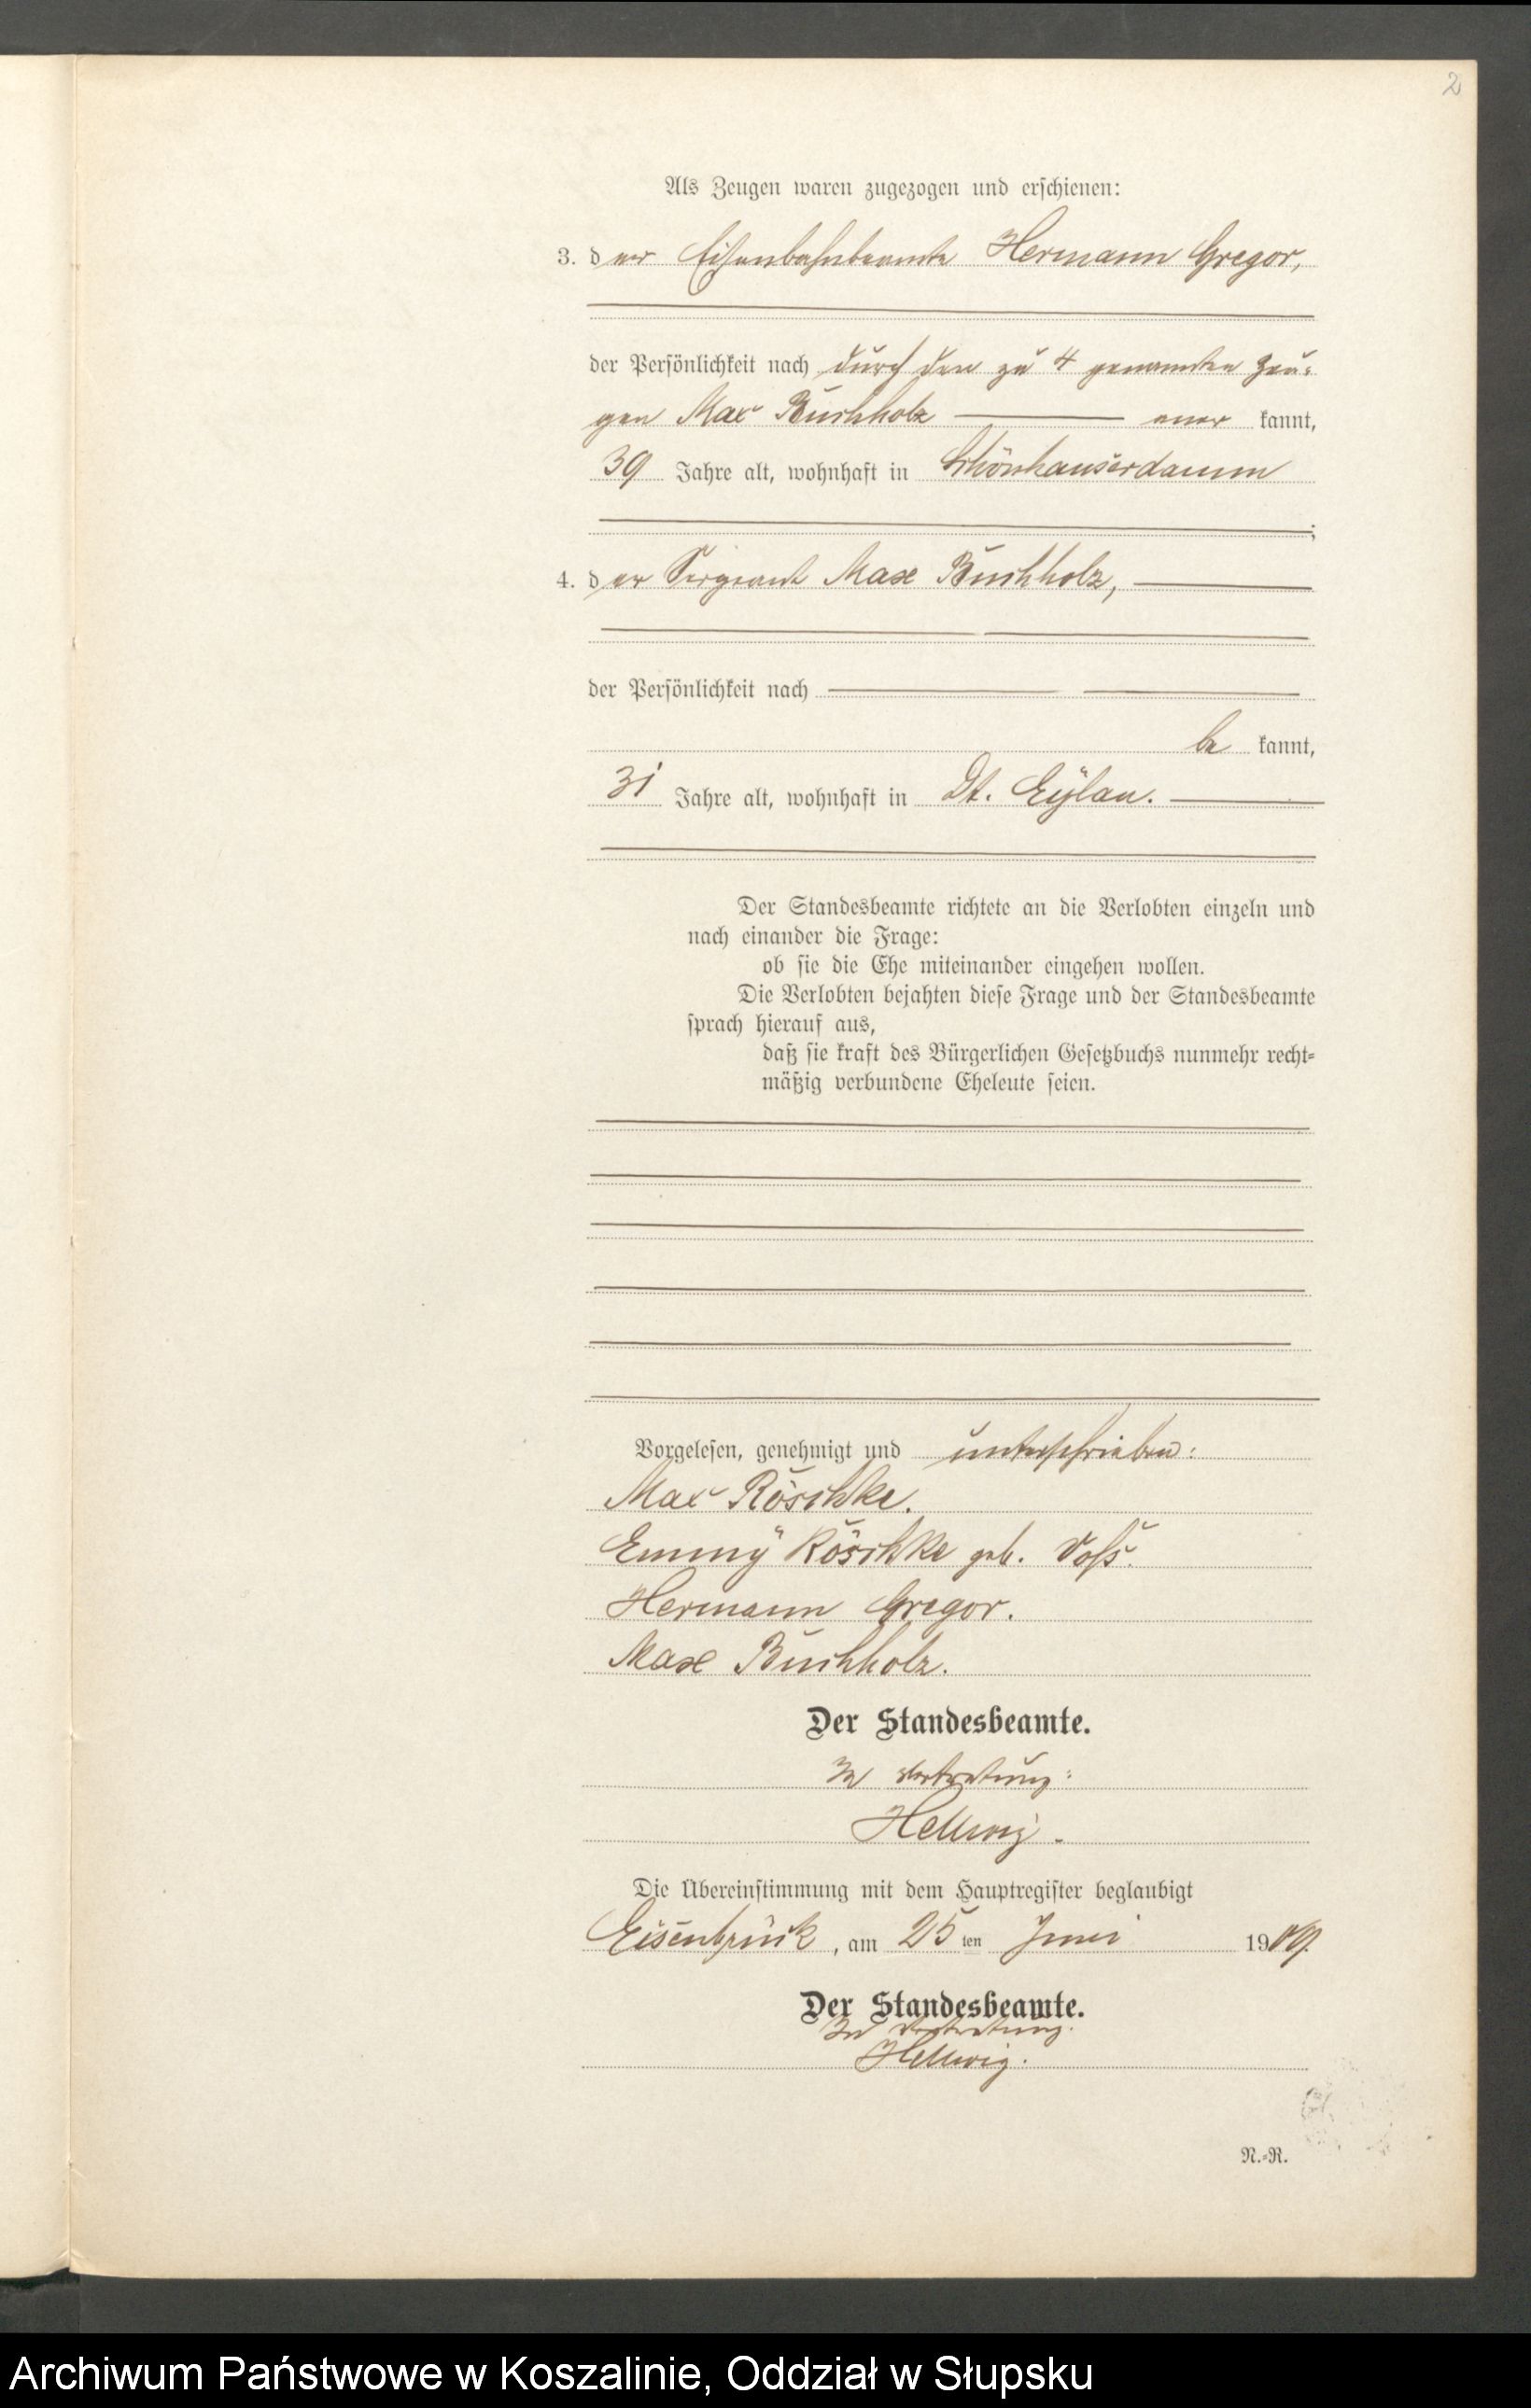 2
Als Zeugen waren zugezogen und erschienen:
3. der Eisenbahnbeamte Hermann Gregor,
der Persönlichkeit nach durch den zu 4 genannten Zeu-
gen Max Buchholz aner kannt,
39 Jahre alt, wohnhaft in Schönhauserdamm
;
4. der Sergeant Max Buchholz,
der Persönlichkeit nach
be kannt,
31 Jahre alt, wohnhaft in Dt. Eylau.
Der Standesbeamte richtete an die Verlobten einzeln und
nach einander die Frage:
ob sie die Ehe miteinander eingehen wollen.
Die Verlobten bejahten diese Frage und der Standesbeamte
sprach hierauf aus,
daß sie kraft des Bürgerlichen Gesetzbuchs nunmehr recht-
mäßig verbundene Eheleute seien.
Vorgelesen, genehmigt und unterschrieben:
Max Röschke.
Emmy Röschke geb. Voß.
Hermann Gregor.
Max Buchholz.
Der Standesbeamte.
In Vertretung:
Hellwig.
Die Übereinstimmung mit dem Hauptregister beglaubigt
Eisenbrück, am 25 ten Juni 1909.
Der Standesbeamte.
In Vertretung.
Hellwig.
N.-R.
Archiwum Państwowe w Koszalinie, Oddział w Słupsku